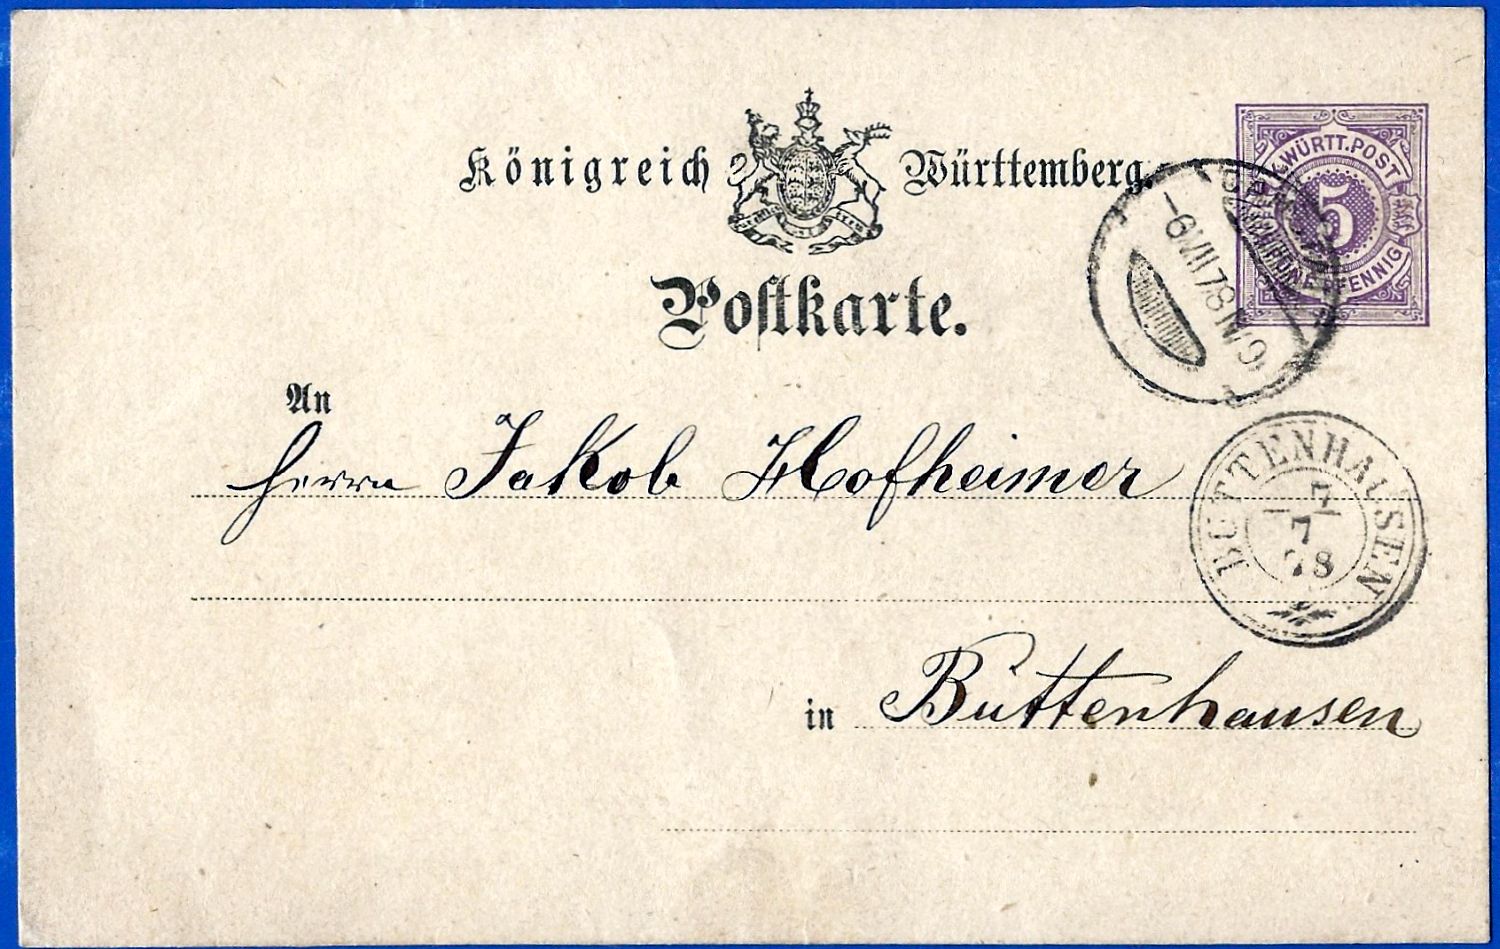 Königreich Württemberg.
Postkarte.
K. WÜRTT. POST
5
FÜNF PFENNIG
-6 VII 78 N 9
An
Herrn Jakob Hofheimer
BUTTENHAUSEN
7
7
78
in Buttenhausen